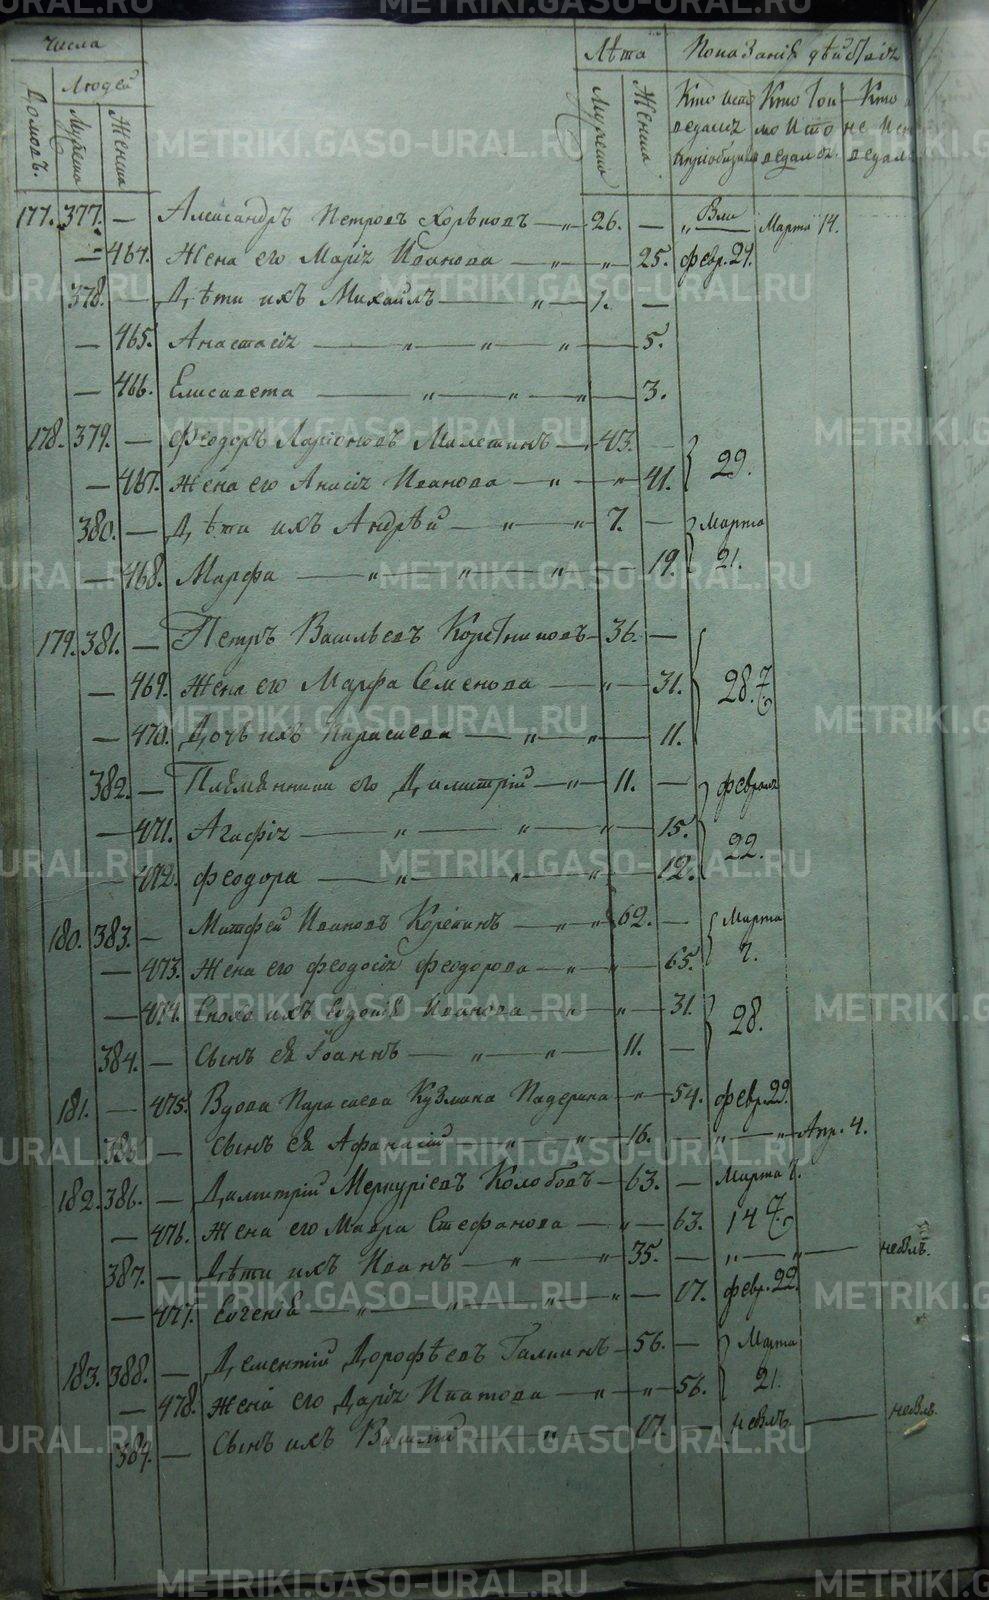 Числа
Лѣта Показаніе дѣйств
Домовъ. Людей
Мужеска Женска Мужеска Женска
Кто испо Кто ток Кто
ведался мо Испо не Испо
и приобщился ведался. ведал
177. 377. — Александръ Петровъ Хорьковъ — „ — 26. — „ Марта 14.
— 464. Жена его Марія Иванова — „ — „ — 25. февр. 21.
378. — Дѣти ихъ Михаилъ — „ — 1. —
— 465. Анастасія — „ — „ — „ — 5.
— 466. Елисавета — „ — „ — „ — 3.
178. 379. — Феодоръ Ларіоновъ — „ 43. —
29.
— 467. Жена его Анисія Иванова — „ — „ — 41.
380. — Дѣти ихъ Андрѣй — „ — „ 7. — Марта
— 468. Марфа — „ — „ — „ — 19. 21.
179. 381. — Петръ Васильевъ — 36. —
— 469. Жена его Марфа Семенова — „ — 31. 28.
— 470. Дочь ихъ Параскева — „ — „ — 11.
382. — Племянники его Димитрій — „ — 11. — февраля
— 471. Агафія — „ — „ — „ — 15.
22.
— 472. Феодора — „ — „ — „ — 12.
180. 383. — Матфей Ивановъ Корепинъ — „ — „ 62. — Марта
— 473. Жена его Феодосія Феодорова — „ — „ — 65. 7.
— 474. Сноха ихъ Евдокія Иванова — „ — „ — 31.
28.
384. — Сынъ ея Іоаннъ — „ — „ — 11. —
181. — 475. Вдова Параскева Кузмина Падерина — „ — 54. февр. 29.
385. — Сынъ ея Афанасій — „ — „ — 16. „ — „ — Апр. 4.
182. 386. — Димитрій Меркуріевъ Колобовъ — 63. — Марта 7.
— 476. Жена его Мавра Стефанова — „ — 63. 14
387. — Дѣти ихъ Иванъ — „ — „ 35. — „ — „ — небылъ.
— 477. Евгенія — „ — „ — „ — „ — 17. февр. 22.
183. 388. — Дементій Дорофѣевъ Галкинъ — 56. — Марта
— 478. Жена его Дарія Ипатова — „ — „ — 56. 21.
389. — Сынъ ихъ Василій — „ — 17. — небылъ — небылъ.
METRIKI.GASO-URAL.RU